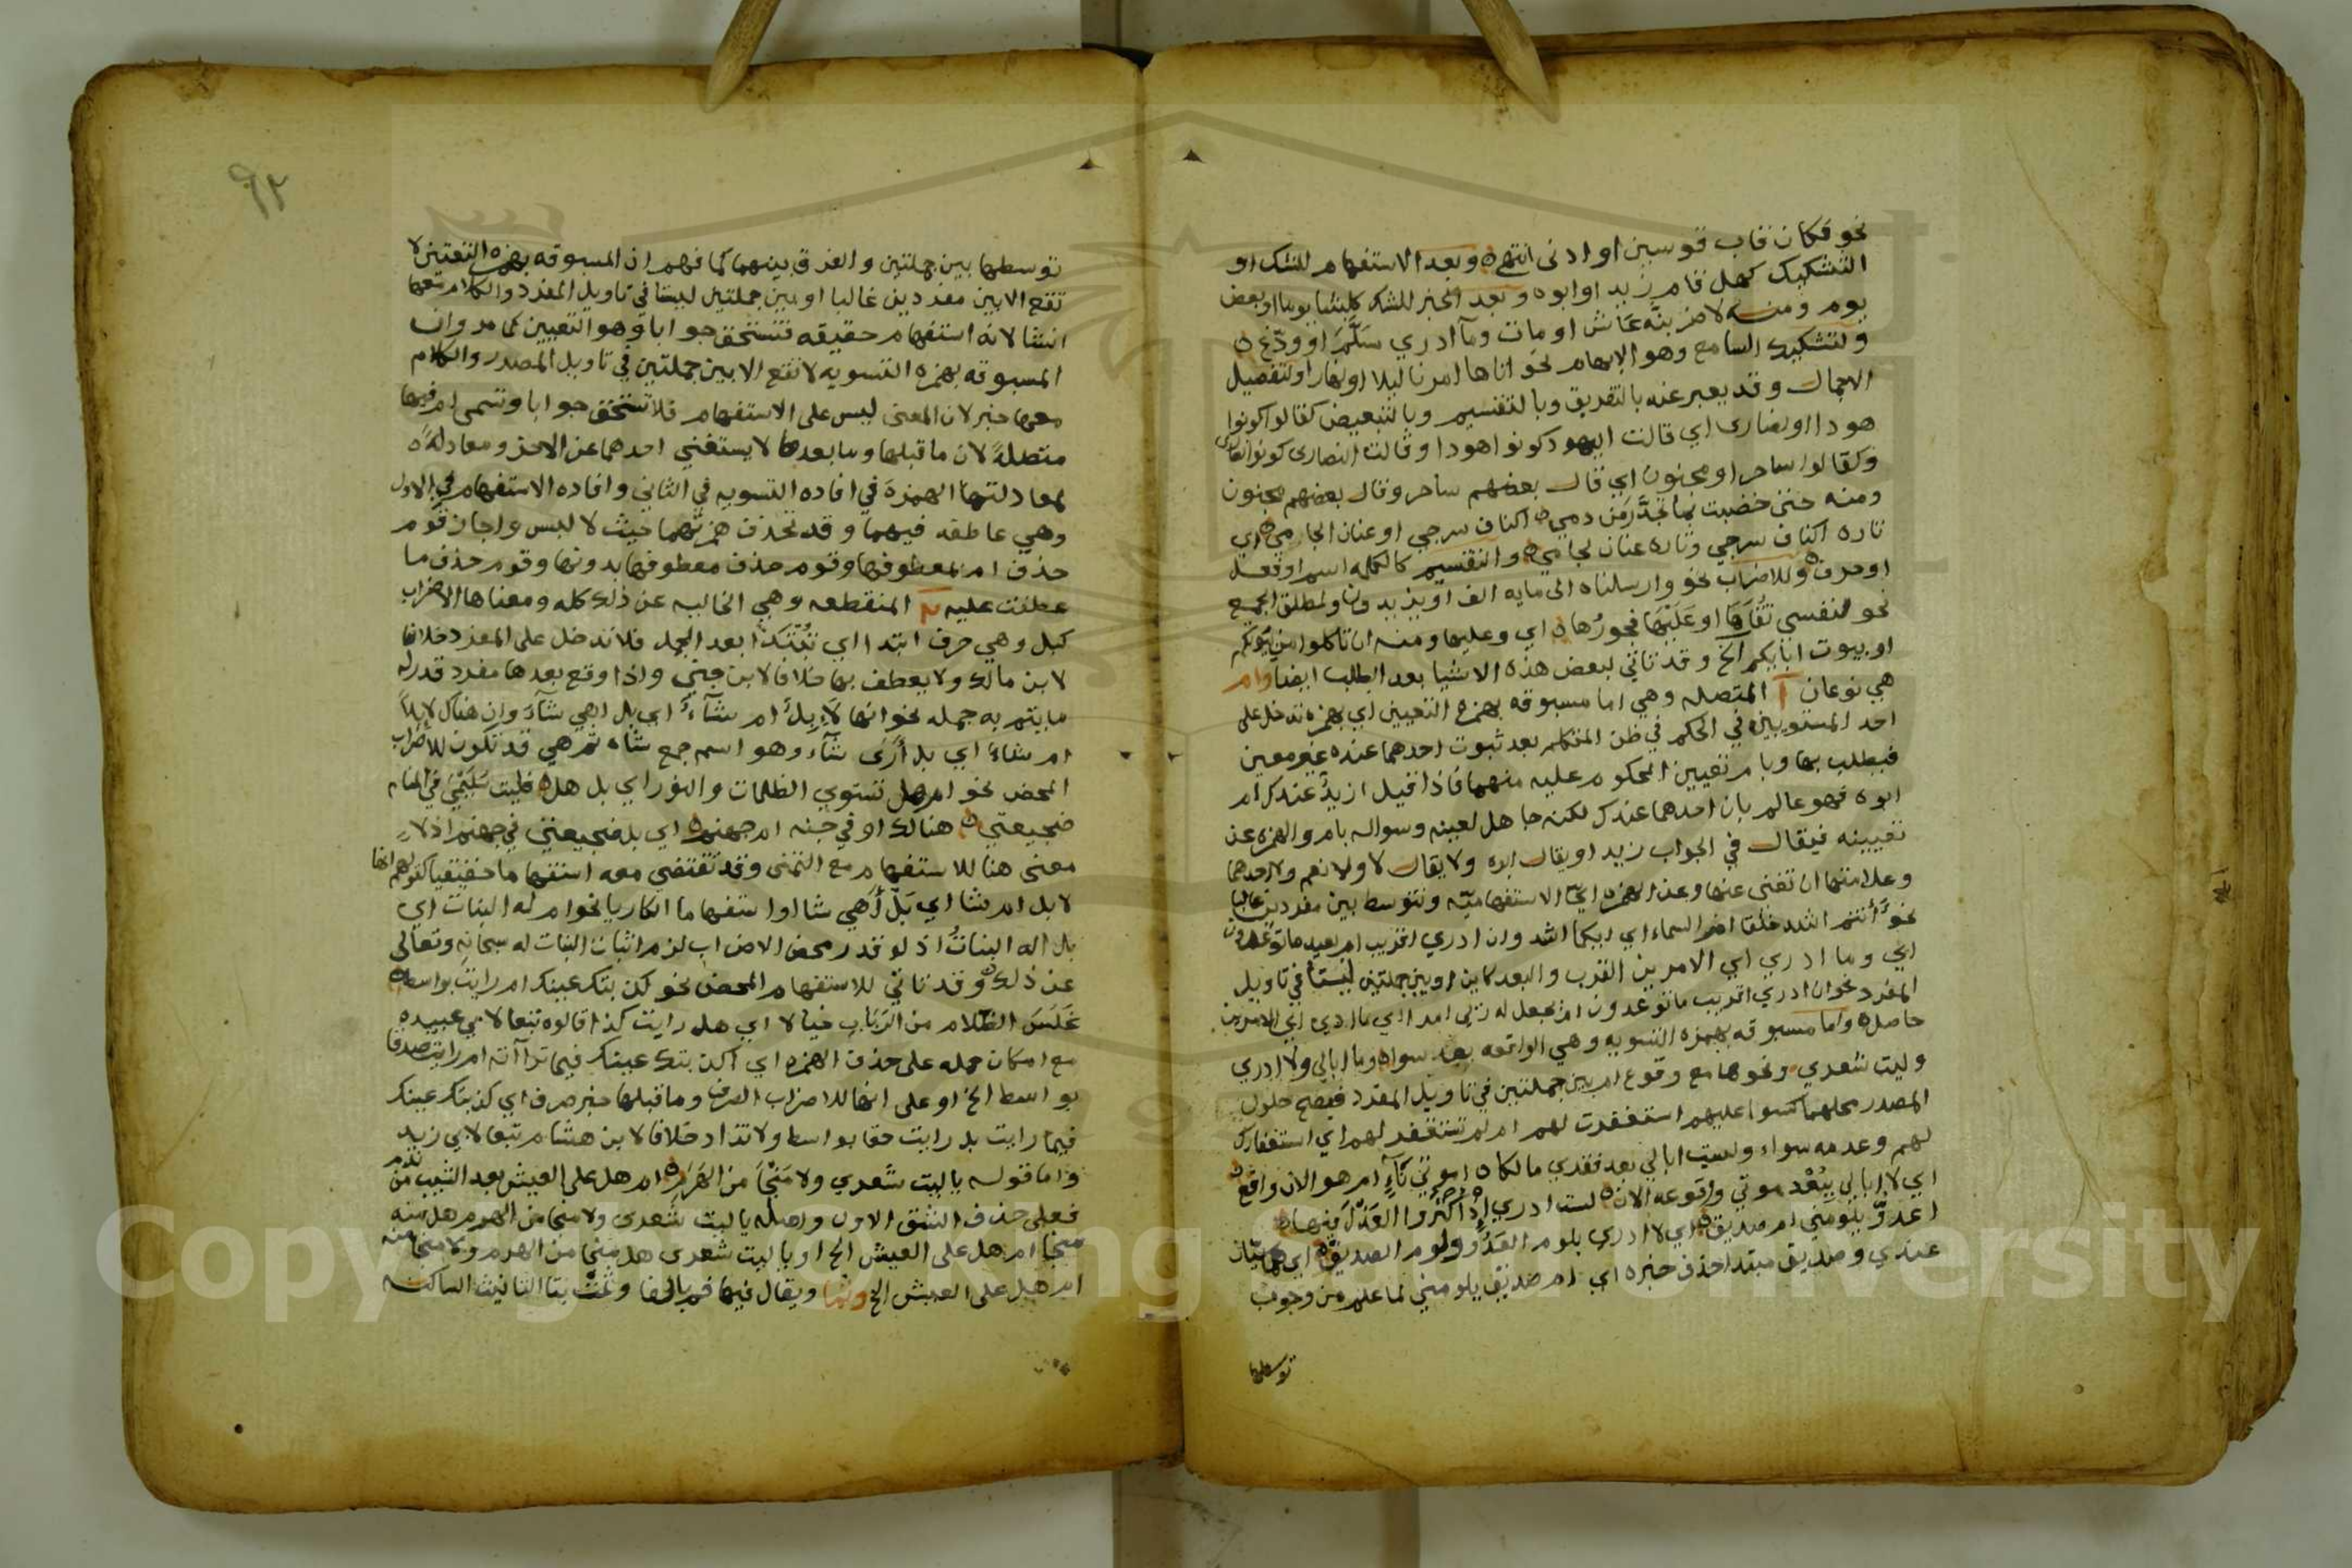 نحو فكان قاب قوسين او ادنى انتهى وبعد الاستفهام للشك او
التشكيك كهل قام زيد او ابوه وبعد الخبر للشك كلبثنا يوما او بعض
يوم ومنه لامر بنَّه عاش او مات وما ادري سَلَّمَ او ودّع
ولتشكيك السامع وهو الابهام نحو اتاها امرنا ليلا او نهارا ولتفصيل
الاجمال وقد يعبر عنه بالتفريق وبالتقسيم وبالتبعيض كقالوا كونوا
هودا او نصارى اي قالت اليهود كونوا هودا وقالت النصارى كونوا نصارى
وكقالوا ساحر او مجنون اي قال بعضهم ساحر وقال بعضهم مجنون
ومنه حتى خضبت بما تحدَّر من دمي اكناف سرجي او عنان لجامي اي
تاره اكناف سرجي وتاره عنان لجامي والتقسيم كالكلمه اسم او فعل
او حرف وللاضراب نحو وارسلناه الى مايه الف او يزيدون ولمطلق الجمع
نحو لنفسي تُقَاهَا او عَلَيْهَا فجورُها اي وعليها ومنه ان تاكلوا من بيوتكم
او بيوت ابايكم الخ وقد تاتي لبعض هذه الاشيا بعد الطلب ايضا وام
هي نوعان آ المتصله وهي اما مسبوقه بهمزه التعيين اي بهمزه تدخل على
احد المستويين في الحكم في ظن المتكلم بعد ثبوت احدهما عنده غير معين
فيطلب بها وبام تعيين المحكوم عليه منهما فاذا قيل ازيدٌ عندك ام
ابوه فهو عالم بان احدهما عندك لكنه جاهل لعينه وسواله بام والهمزه عن
تعيينه فيقال في الجواب زيد او يقال ابوه ولا يقال لا ولا نعم ولا احدهما
وعلامتها ان تغني عنها وعن الهمزه ايّ الاستفهاميّه وتتوسط بين مفردين غالبا
نحو أأنتم اشد خلقا ام السماء اي ايكما اشد وان ادري اقريب ام بعيد ما توعدون
اي وما ادري اي الامرين القرب والبعد كاين او بين جملتين ليستا في تاويل
المفرد نحو ان ادري اقريب ما توعدون ام يجعل له ربي امدا اي ما ادري اي الامرين
حاصل واما مسبوقه بهمزه التسويه وهي الواقعه بعد سواه وما ابالي ولا ادري
وليت شعري ونحوها مع وقوع ام بين جملتين في تاويل المفرد فيصح حلول
المصدر محلهما كسوا عليهم استغفرت لهم ام لم تستغفر لهم اي استغفارك
لهم وعدمه سواء ولست ابالي بعد فقدي مالكا اموتي نَآءٍ ام هو الان واقع
اي لا ابالي بِبُعْد موتي وقوعه الان لست ادري اِذْ اكثروا العَذْلَ فيها
اعدوٌّ يلومني ام صديق اي لا ادري بلوم العَدُوِّ ولوم الصديق اي هما سيان
عندي وصديق مبتدا حذف خبره اي ام صديق يلومني لما علم من وجوب
توسطها
٩٢
توسطها بين جملتين والفرق بينهما كما فهم ان المسبوقه بهمزه التعيين لا
تقع الا بين مفردين غالبا او بين جملتين ليستا في تاويل المفرد والكلام معها
انشا لانه استفهام حقيقه فتستحق جوابا وهو التعيين كما مر وان
المسبوقه بهمزه التسويه لا تقع الا بين جملتين في تاويل المصدر والكلام
معها خبر لان المعنى ليس على الاستفهام فلا تستحق جوابا وتسمى ام فيها
متصلةً لان ما قبلها وما بعدها لا يستغني احدهما عن الاخر ومعادلةً
لمعادلتها الهمزة في افاده التسويه في الثاني وافاده الاستفهام في الاول
وهي عاطفه فيهما وقد تحذف همزتهما حيث لا لبس واجاز قوم
حذف ام بمعطوفها وقوم حذف معطوفها بدونها وقوم حذف ما
عطفت عليه بَ المنقطعه وهي الخاليه عن ذلك كله ومعناها الاضراب
كبل وهي حرف ابتدا اي تُبْتَدَا بعد الجمل فلا تدخل على المفرد خلافا
لابن مالك ولا يعطف بها خلافا لابن جني واذا وقع بعدها مفرد قدر له
ما يتم به جمله نحو انها لَاِبِلٌ ام شآءٌ اي بل اهي شآء وان هناك لابلاً
ام شاءً اي بل أَرَى شآء وهو اسم جمع شاه ثم هي قد تكون للاضراب
المحض نحو ام هل تستوي الظلمات والنور اي بل هل فليت سُلَيْمَى في المنام
ضجيعتي هنالك او في جنه ام جهنم اي بل ضجيعتي في جهنم اذ لا
معنى هنا للاستفهام مع التمنى وقد تقتضي معه استفهاما حقيقيا كقولهم انها
لابل ام شا اي بَلْ أَهي شا او استفهاما انكاريا نحو ام له البنات اي
بل اله البناتُ اذ لو قدر محض الاضراب لزم اثبات البنات له سبحانه وتعالى
عن ذلك وقد تاتي للاستفهام المحض نحو كذبتك عينك ام رايت بواسط
غَلَسَ الظلام من الرَّبَاب خيالا اي هل رايت كذا قالوه تبعا لابي عبيده
مع امكان حمله على حذف الهمزه اي اكذبتك عينك فيما تراآته ام رايت صدقا
بواسط الخ او على انها للاضراب الصرف وما قبلها خبر صرف اي كذبتك عينك
فيما رايت بل رايت حقا بواسط ولا تزاد خلافا لابن هشام تبعا لابي زيد
واما قوله ياليت شعري ولا مَنْجَا من الهَرَمِ ام هل على العيش بعد الشيب من ندم
فعلى حذف الشق الاول واصله ياليت شعرى ولا منجا من الهرم هل منه
منجا ام هل على العيش الخ او ياليت شعرى هل منجا من الهرم ولا منجا منه
ام هل على العيش الخ وثُمَّ ويقال فيها فم بالفا وثمت بتا التانيث الساكنه
Copyright © King Saud University